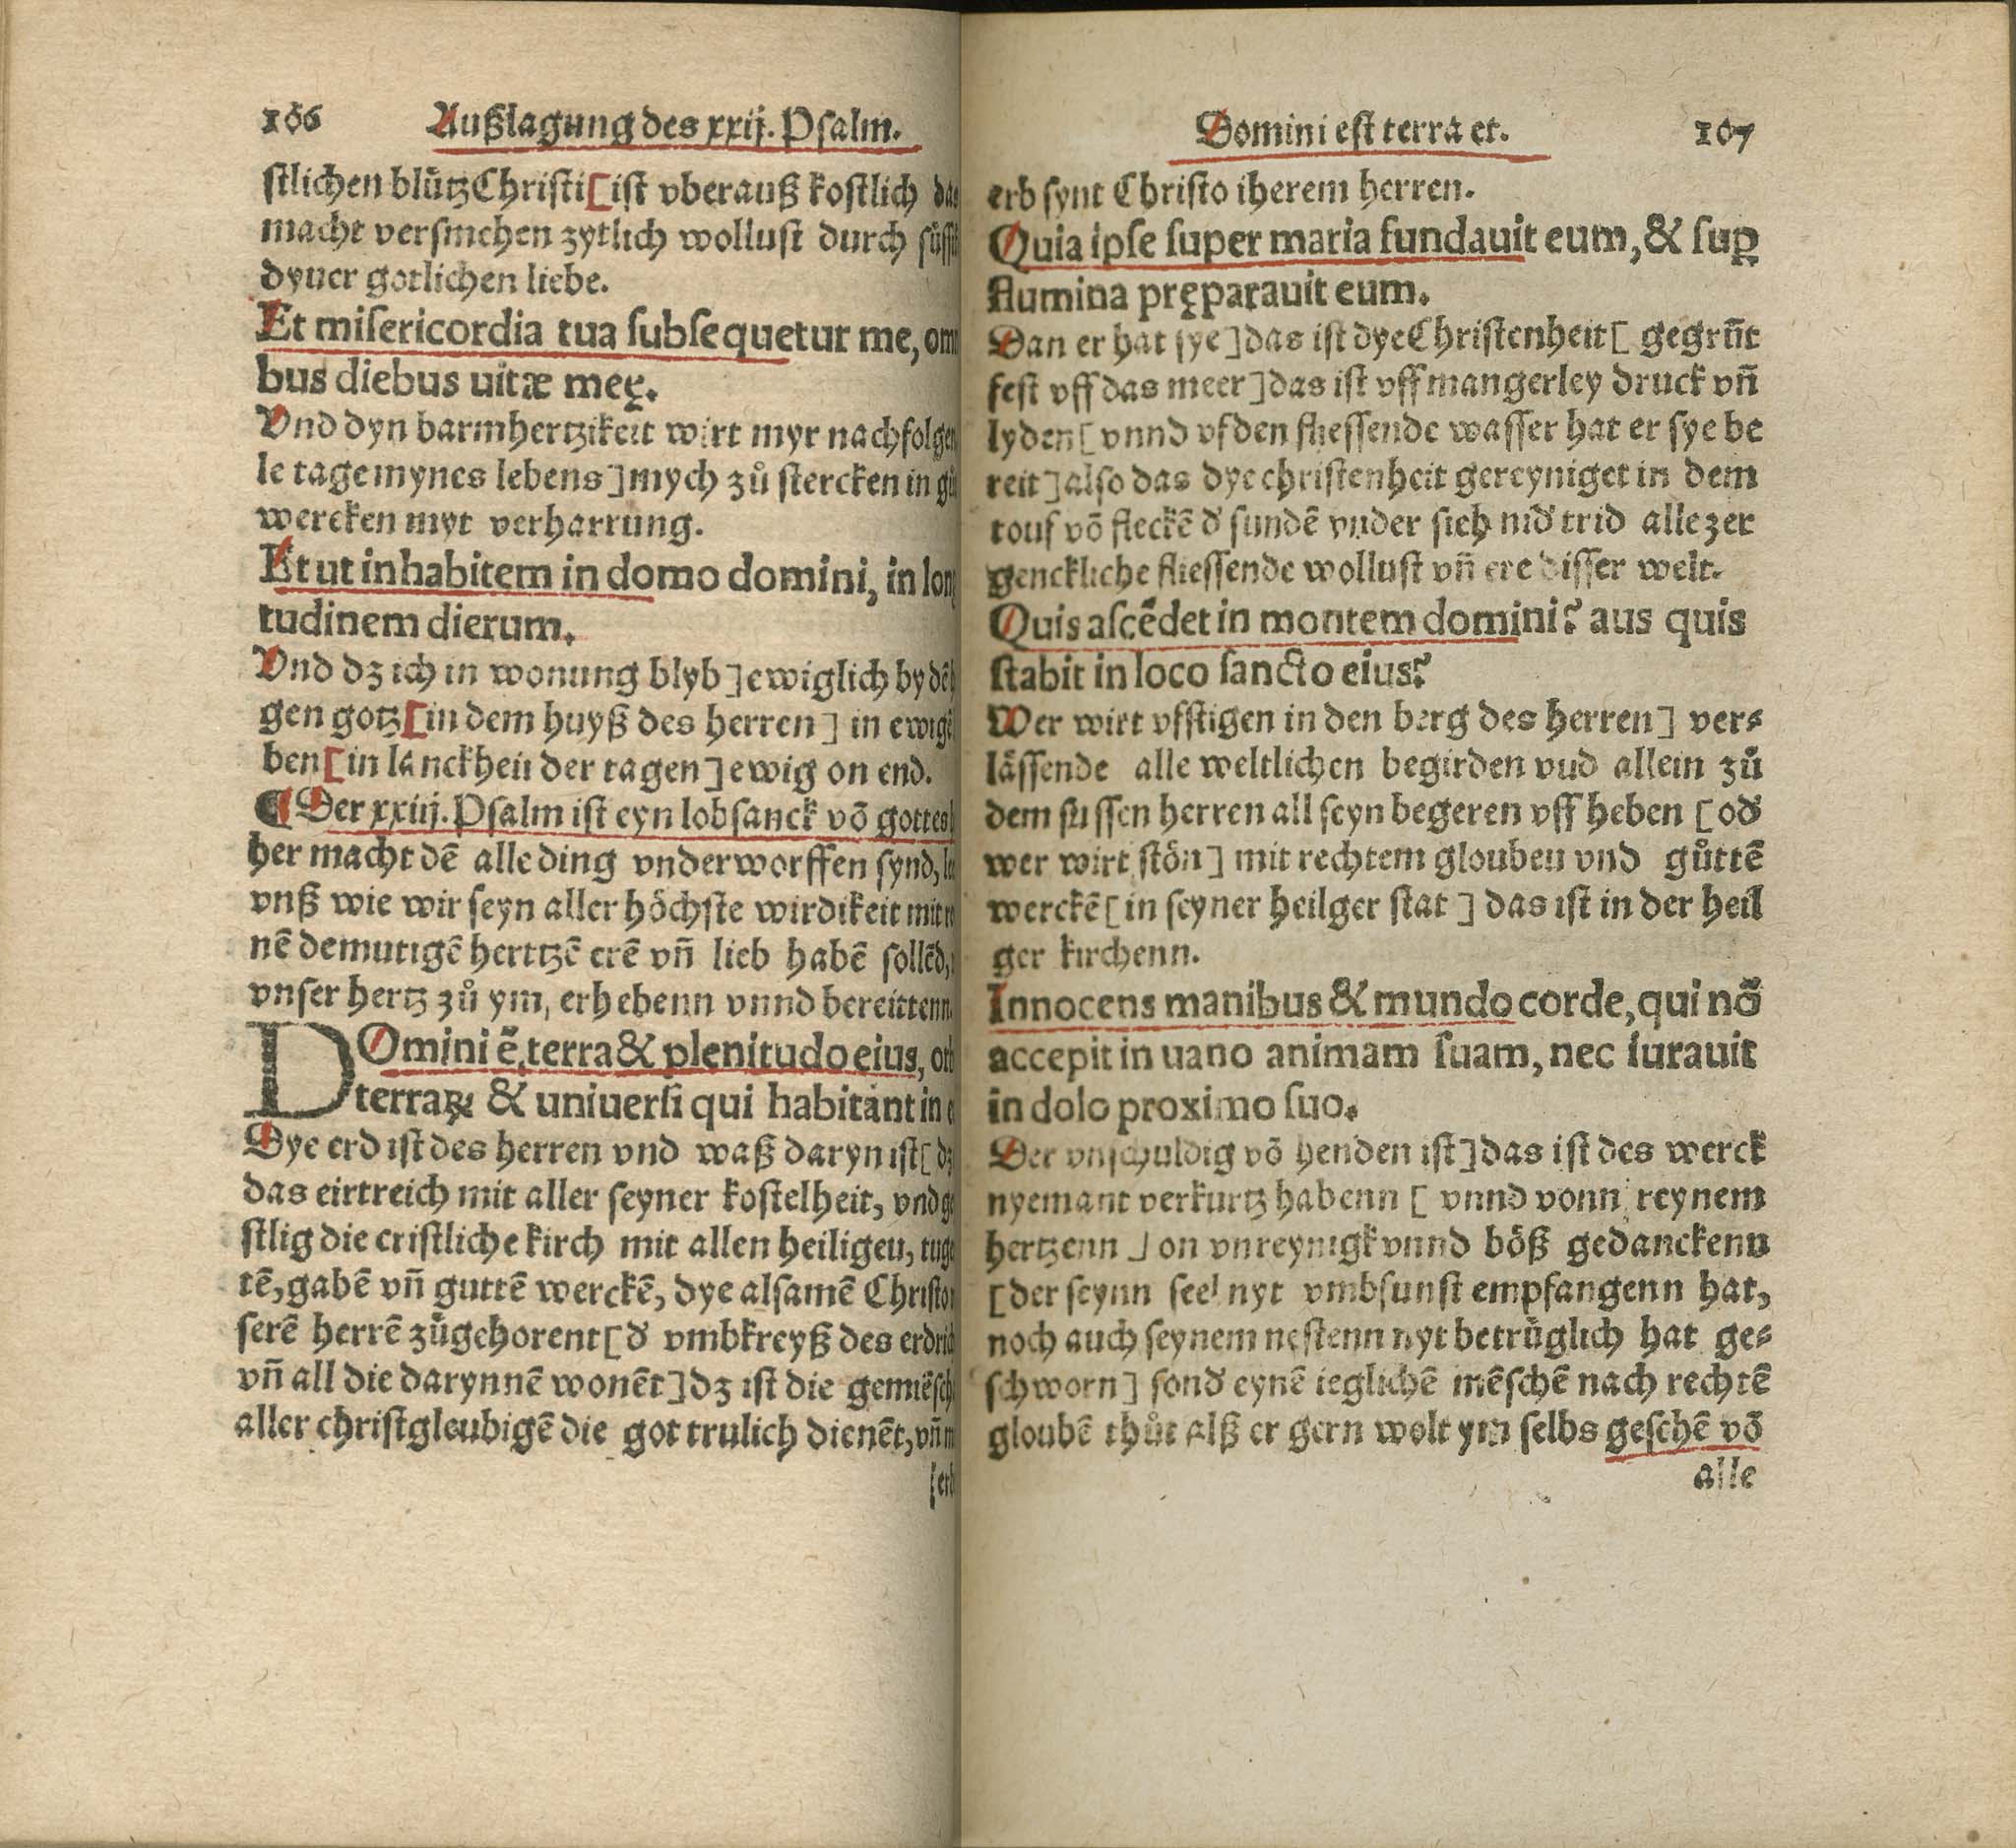 106 Außlagung des xxij. Psalm.
stlichen blůtz Christi [ ist vberauß kostlich das
macht versmehen zytlich wollust durch
dyner gotlichen liebe.
Et misericordia tua subsequetur me,
bus diebus uitæ meę.
Vnd dyn barmhertzikeit wirt myr nachfolgen
le tage mynes lebens ] mych zů stercken in
wercken myt verharrung.
Et ut inhabitem in domo domini, in
tudinem dierum.
Vnd dz ich in wonung blyb ] ewiglich by
gen gotz [ in dem huyß des herren ] in
ben [ in lanckheit der tagen ] ewig on end.
¶ Der xxiij. Psalm ist eyn lobsanck võ
her macht dẽ alle ding vnderworffen synd,
vnß wie wir seyn aller höchste wirdikeit mit
nẽ demutigẽ herttzẽ erẽ vñ lieb habẽ sollẽd,
vnser hertz zů ym, erhebenn vnnd bereittenn.
DOmini ẽ terra & plenitudo eius,
terraꝝ & uniuersi qui habitant in
Dye erd ist des herren vnd waß daryn ist [
das eirtreich mit aller seyner kostelheit, vnd
stlig die cristliche kirch mit allen heiligen,
tẽ, gabẽ vñ guttẽ werckẽ, dye alsamẽ
serẽ herrẽ zůgehorent [ d' vmbkreyß des
vñ all die darynnẽ wonẽt ] dz ist die
aller christgleubigẽ die got trulich dienẽt, vñ
[ erb
Domini est terra et. 107
erb synt Christo iherem herren.
Quia ipse super maria fundauit eum, & suꝑ
flumina pręparauit eum.
Dan er hat sye ] das ist dye Christenheit [ gegrũt
fest vff das meer ] das ist vff mangerley druck vñ
lyden [ vnnd vf den fliessende wasser hat er sye be
reit ] also das dye christenheit gereyniget in dem
touf võ fleckẽ d' sundẽ vnder sich nid' trid alle zer
genckliche fliessende wollust vñ ere disser welt.
Quis ascẽdet in montem domini? aus quis
stabit in loco sancto eius?
Wer wirt vfstigen in den berg des herren ] ver⸗
lässende alle weltlichen begirden vnd allein zů
dem sussen herren all seyn begeren vff heben [ od'
wer wirt stön ] mit rechtem glouben vnd gůttẽ
werckẽ [ in seyner heilger stat ] das ist in der heil
ger kirchenn.
Innocens manibus & mundo corde, qui nõ
accepit in uano animam suam, nec iurauit
in dolo proximo suo.
Der vnschuldig võ henden ist ] das ist des werck
nyemant verkurtz habenn [ vnnd vonn reynem
hertzenn ] on vnreynigk vnnd böß gedanckenn
[ der seynn seel nyt vmbsunst empfangenn hat,
noch auch seynem nestenn nyt betrůglich hat ge⸗
schworn ] sond' eynẽ ieglichẽ mẽschẽ nach rechtẽ
gloubẽ thůt alß er gern wolt ym selbs geschẽ võ
alle